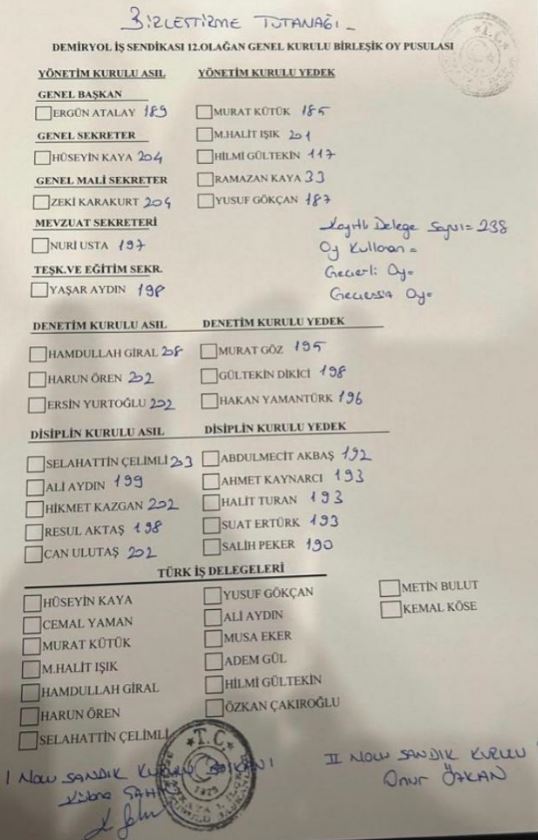 BİRLEŞTİRME TUTANAĞI
DEMİRYOL İŞ SENDİKASI 12.OLAĞAN GENEL KURULU BİRLEŞİK OY PUSULASI
YÖNETİM KURULU ASIL YÖNETİM KURULU YEDEK
GENEL BAŞKAN
ERGÜN ATALAY 189 MURAT KÜTÜK 185
GENEL SEKRETER M.HALİT IŞIK 201
HÜSEYİN KAYA 204 HİLMİ GÜLTEKİN 117
GENEL MALİ SEKRETER RAMAZAN KAYA 33
ZEKİ KARAKURT 204 YUSUF GÖKÇAN 187
MEVZUAT SEKRETERİ
NURİ USTA 197
TEŞK.VE EĞİTİM SEKR.
YAŞAR AYDIN 198
Kayıtlı Delege Sayısı= 238
Oy Kullanan=
Geçerli Oy=
Geçersiz Oy=
DENETİM KURULU ASIL DENETİM KURULU YEDEK
HAMDULLAH GİRAL MURAT GÖZ 195
HARUN ÖREN 202 GÜLTEKİN DİKİCİ 198
ERSİN YURTOĞLU 202 HAKAN YAMANTÜRK 196
DİSİPLİN KURULU ASIL DİSİPLİN KURULU YEDEK
SELAHATTİN ÇELİMLİ 203 ABDULMECİT AKBAŞ 192
ALİ AYDIN 199 AHMET KAYNARCI 193
HİKMET KAZGAN 202 HALİT TURAN 193
RESUL AKTAŞ 198 SUAT ERTÜRK 193
CAN ULUTAŞ 202 SALİH PEKER 190
TÜRK İŞ DELEGELERİ
HÜSEYİN KAYA YUSUF GÖKÇAN METİN BULUT
CEMAL YAMAN ALİ AYDIN KEMAL KÖSE
MURAT KÜTÜK MUSA EKER
M.HALİT IŞIK ADEM GÜL
HAMDULLAH GİRAL HİLMİ GÜLTEKİN
HARUN ÖREN ÖZKAN ÇAKIROĞLU
SELAHATTİN ÇELİMLİ
I NOLU SANDIK KURULU BAŞKANI
Kübra
II NOLU SANDIK KURULU
Onur ÖZKAN
T.C.